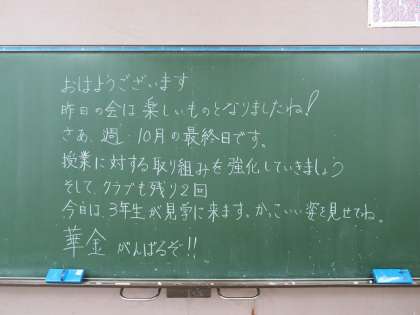 おはようございます
昨日の会は楽しいものとなりましたね!
さあ、週・10月の最終日です。
授業に対する取り組みを強化していきましょう
そして、クラブも残り2回
今日は、3年生が見学に来ます。かっこいい姿を見せてね。
華金 がんばるぞ!!